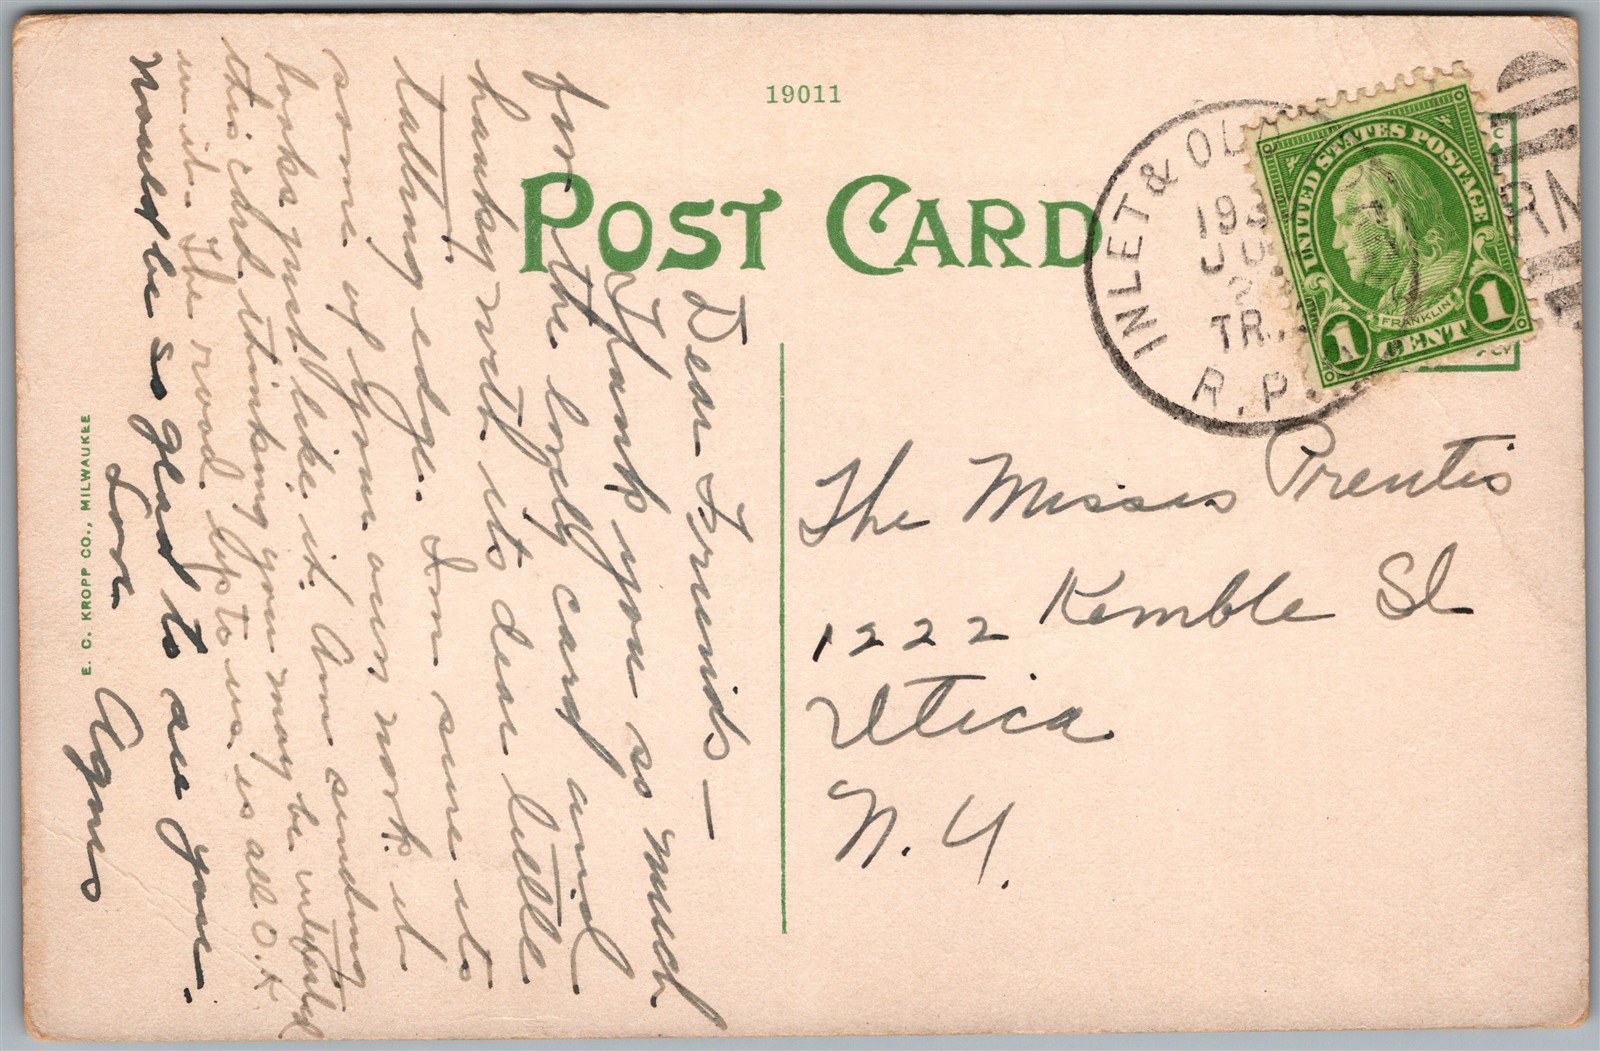 19011
POST CARD
INLET & OL
193
JU
2
TR.
R.P.
RM
UNITED STATES POSTAGE
FRANKLIN
1 CENT 1
The Misses Prentis
1222 Kemble St
Utica
N. Y.
Dear Friends—
Thank you so much
for the lovely card and
hanky with its dear little
tatting edge. I'm sure its
some of your own work. it
looks just like it. Am sending
this card thinking you may be interested
in it. The road up to us is all O.K
Would be so glad to see you.
Love
Agnes
E. C. KROPP CO., MILWAUKEE